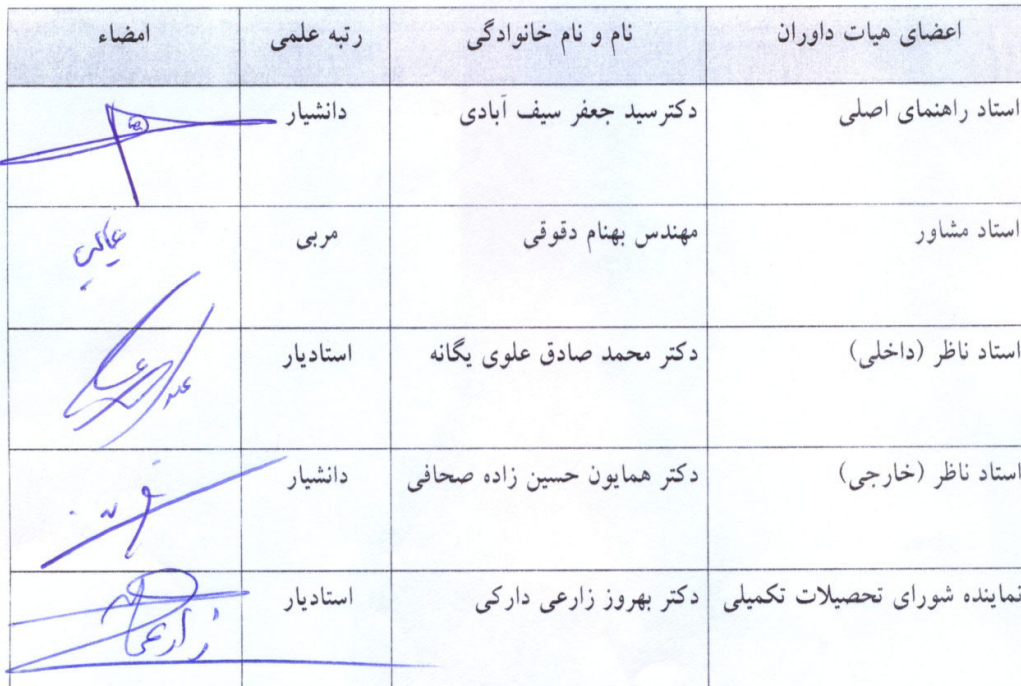 اعضای هیات داوران نام و نام خانوادگی رتبه علمی امضاء
استاد راهنمای اصلی دکترسید جعفر سیف آبادی دانشیار
استاد مشاور مهندس بهنام دقوقی مربی
استاد ناظر (داخلی) دکتر محمد صادق علوی یگانه استادیار
استاد ناظر (خارجی) دکتر همایون حسین زاده صحافی دانشیار
نماینده شورای تحصیلات تکمیلی دکتر بهروز زارعی دارکی استادیار
زارعی